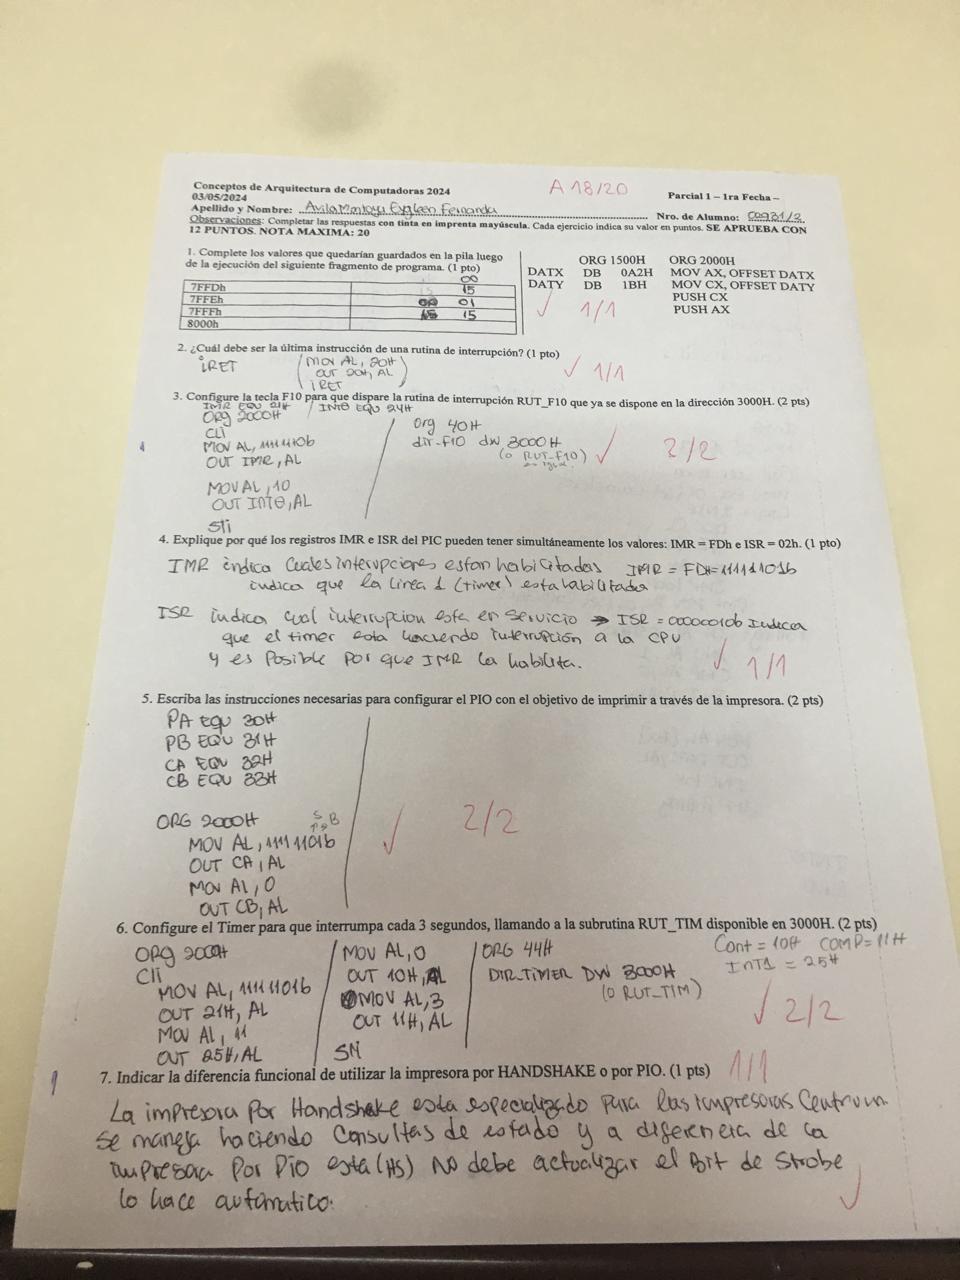 Conceptos de Arquitectura de Computadoras 2024
A 18/20
Parcial 1 – 1ra Fecha –
03/05/2024
Apellido y Nombre: Avila Montoya Fernanda
Nro. de Alumno:
Observaciones: Completar las respuestas con tinta en imprenta mayúscula. Cada ejercicio indica su valor en puntos. SE APRUEBA CON
12 PUNTOS. NOTA MAXIMA: 20
1. Complete los valores que quedarían guardados en la pila luego
de la ejecución del siguiente fragmento de programa. (1 pto)
00
7FFDh 15
7FFEh 01
7FFFh 15
8000h
ORG 1500H
DATX DB 0A2H
DATY DB 1BH
1/1
ORG 2000H
MOV AX, OFFSET DATX
MOV CX, OFFSET DATY
PUSH CX
PUSH AX
2. ¿Cuál debe ser la última instrucción de una rutina de interrupción? (1 pto)
iRET
(MOV AL, 20H
OUT 20H, AL
iRET)
1/1
3. Configure la tecla F10 para que dispare la rutina de interrupción RUT_F10 que ya se dispone en la dirección 3000H. (2 pts)
IMR EQU 21H / INT0 EQU 24H
ORG 2000H
CLI
MOV AL, 11111110b
OUT IMR, AL
MOV AL, 10
OUT INT0, AL
STi
Org 40H
dir-F10 dw 3000H
(o RUT-F10)
2/2
4. Explique por qué los registros IMR e ISR del PIC pueden tener simultáneamente los valores: IMR = FDh e ISR = 02h. (1 pto)
IMR indica cuales interrupciones estan habilitadas IMR = FDH=11111101b
indica que la linea 1 (timer) esta habilitada
ISR indica cual interrupcion este en servicio → ISR = 00000010b Indica
que el timer esta haciendo interrupción a la CPU
y es posible por que IMR la habilita.
1/1
5. Escriba las instrucciones necesarias para configurar el PIO con el objetivo de imprimir a través de la impresora. (2 pts)
PA EQU 30H
PB EQU 31H
CA EQU 32H
CB EQU 33H
ORG 2000H
S B
MOV AL, 11111101b
OUT CA, AL
MOV AL, 0
OUT CB, AL
2/2
6. Configure el Timer para que interrumpa cada 3 segundos, llamando a la subrutina RUT_TIM disponible en 3000H. (2 pts)
Cont = 10H COMP = 11H
INT1 = 25H
ORG 2000H
Cli
MOV AL, 11111101b
OUT 21H, AL
MOV AL, 11
OUT 25H, AL
MOV AL, 0
OUT 10H, AL
MOV AL, 3
OUT 11H, AL
STi
ORG 44H
DIR_TIMER DW 3000H
(o RUT_TIM)
2/2
7. Indicar la diferencia funcional de utilizar la impresora por HANDSHAKE o por PIO. (1 pts)
1/1
La impresora por Handshake esta especializado para las impresoras
se maneja haciendo consultas de estado y a diferencia de la
impresora por PIO esta (HS) no debe actualizar el Bit de Strobe
lo hace automatico.